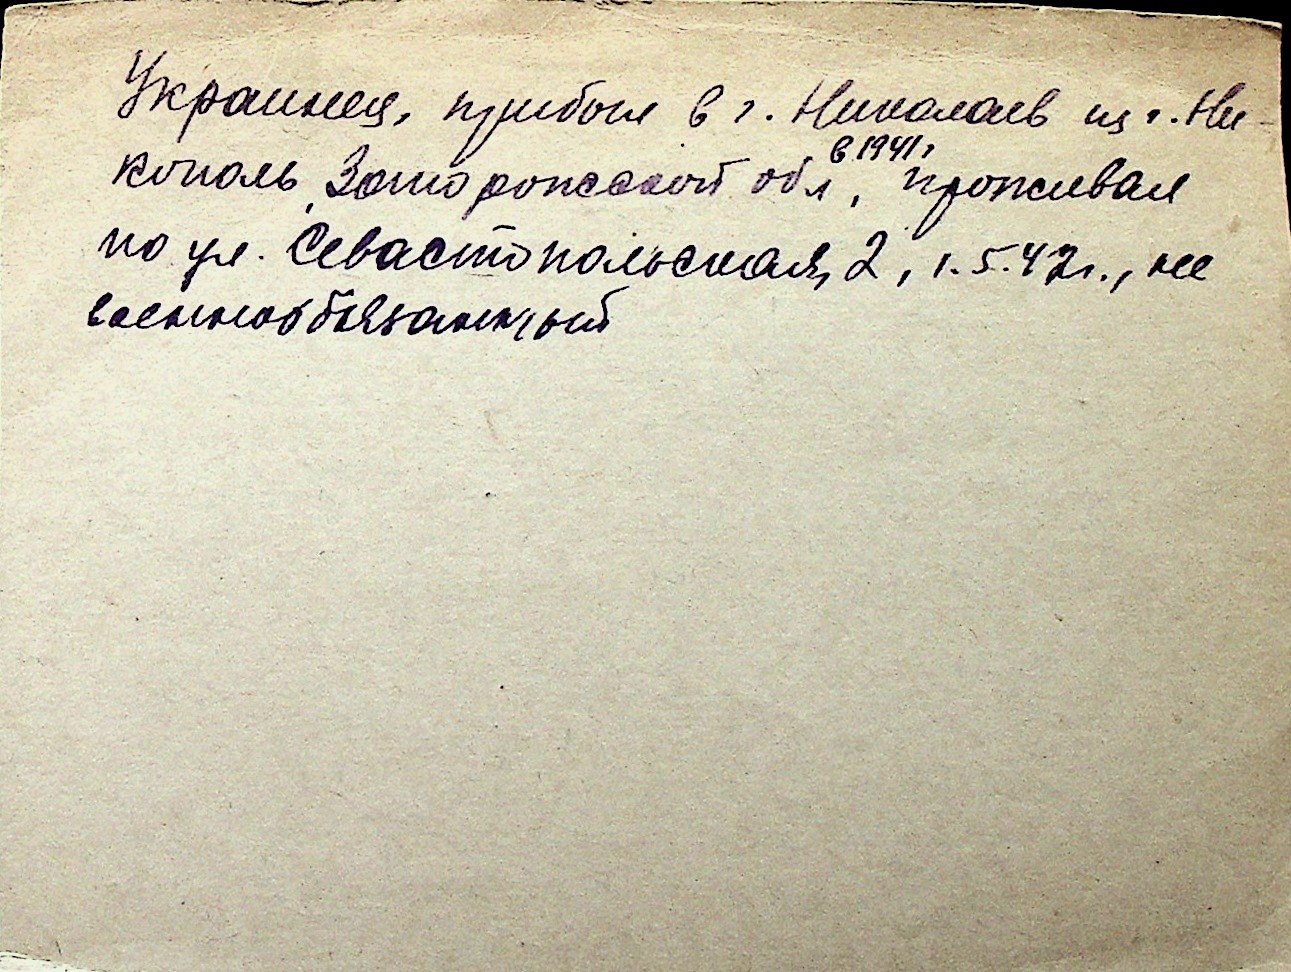 Украинец, прибыл в г. Николаев из г. Ни-
кополь, Запорожской обл в 1941г, проживал
по ул. Севастопольская, 2, 1.5.42г., не
военнообязанный